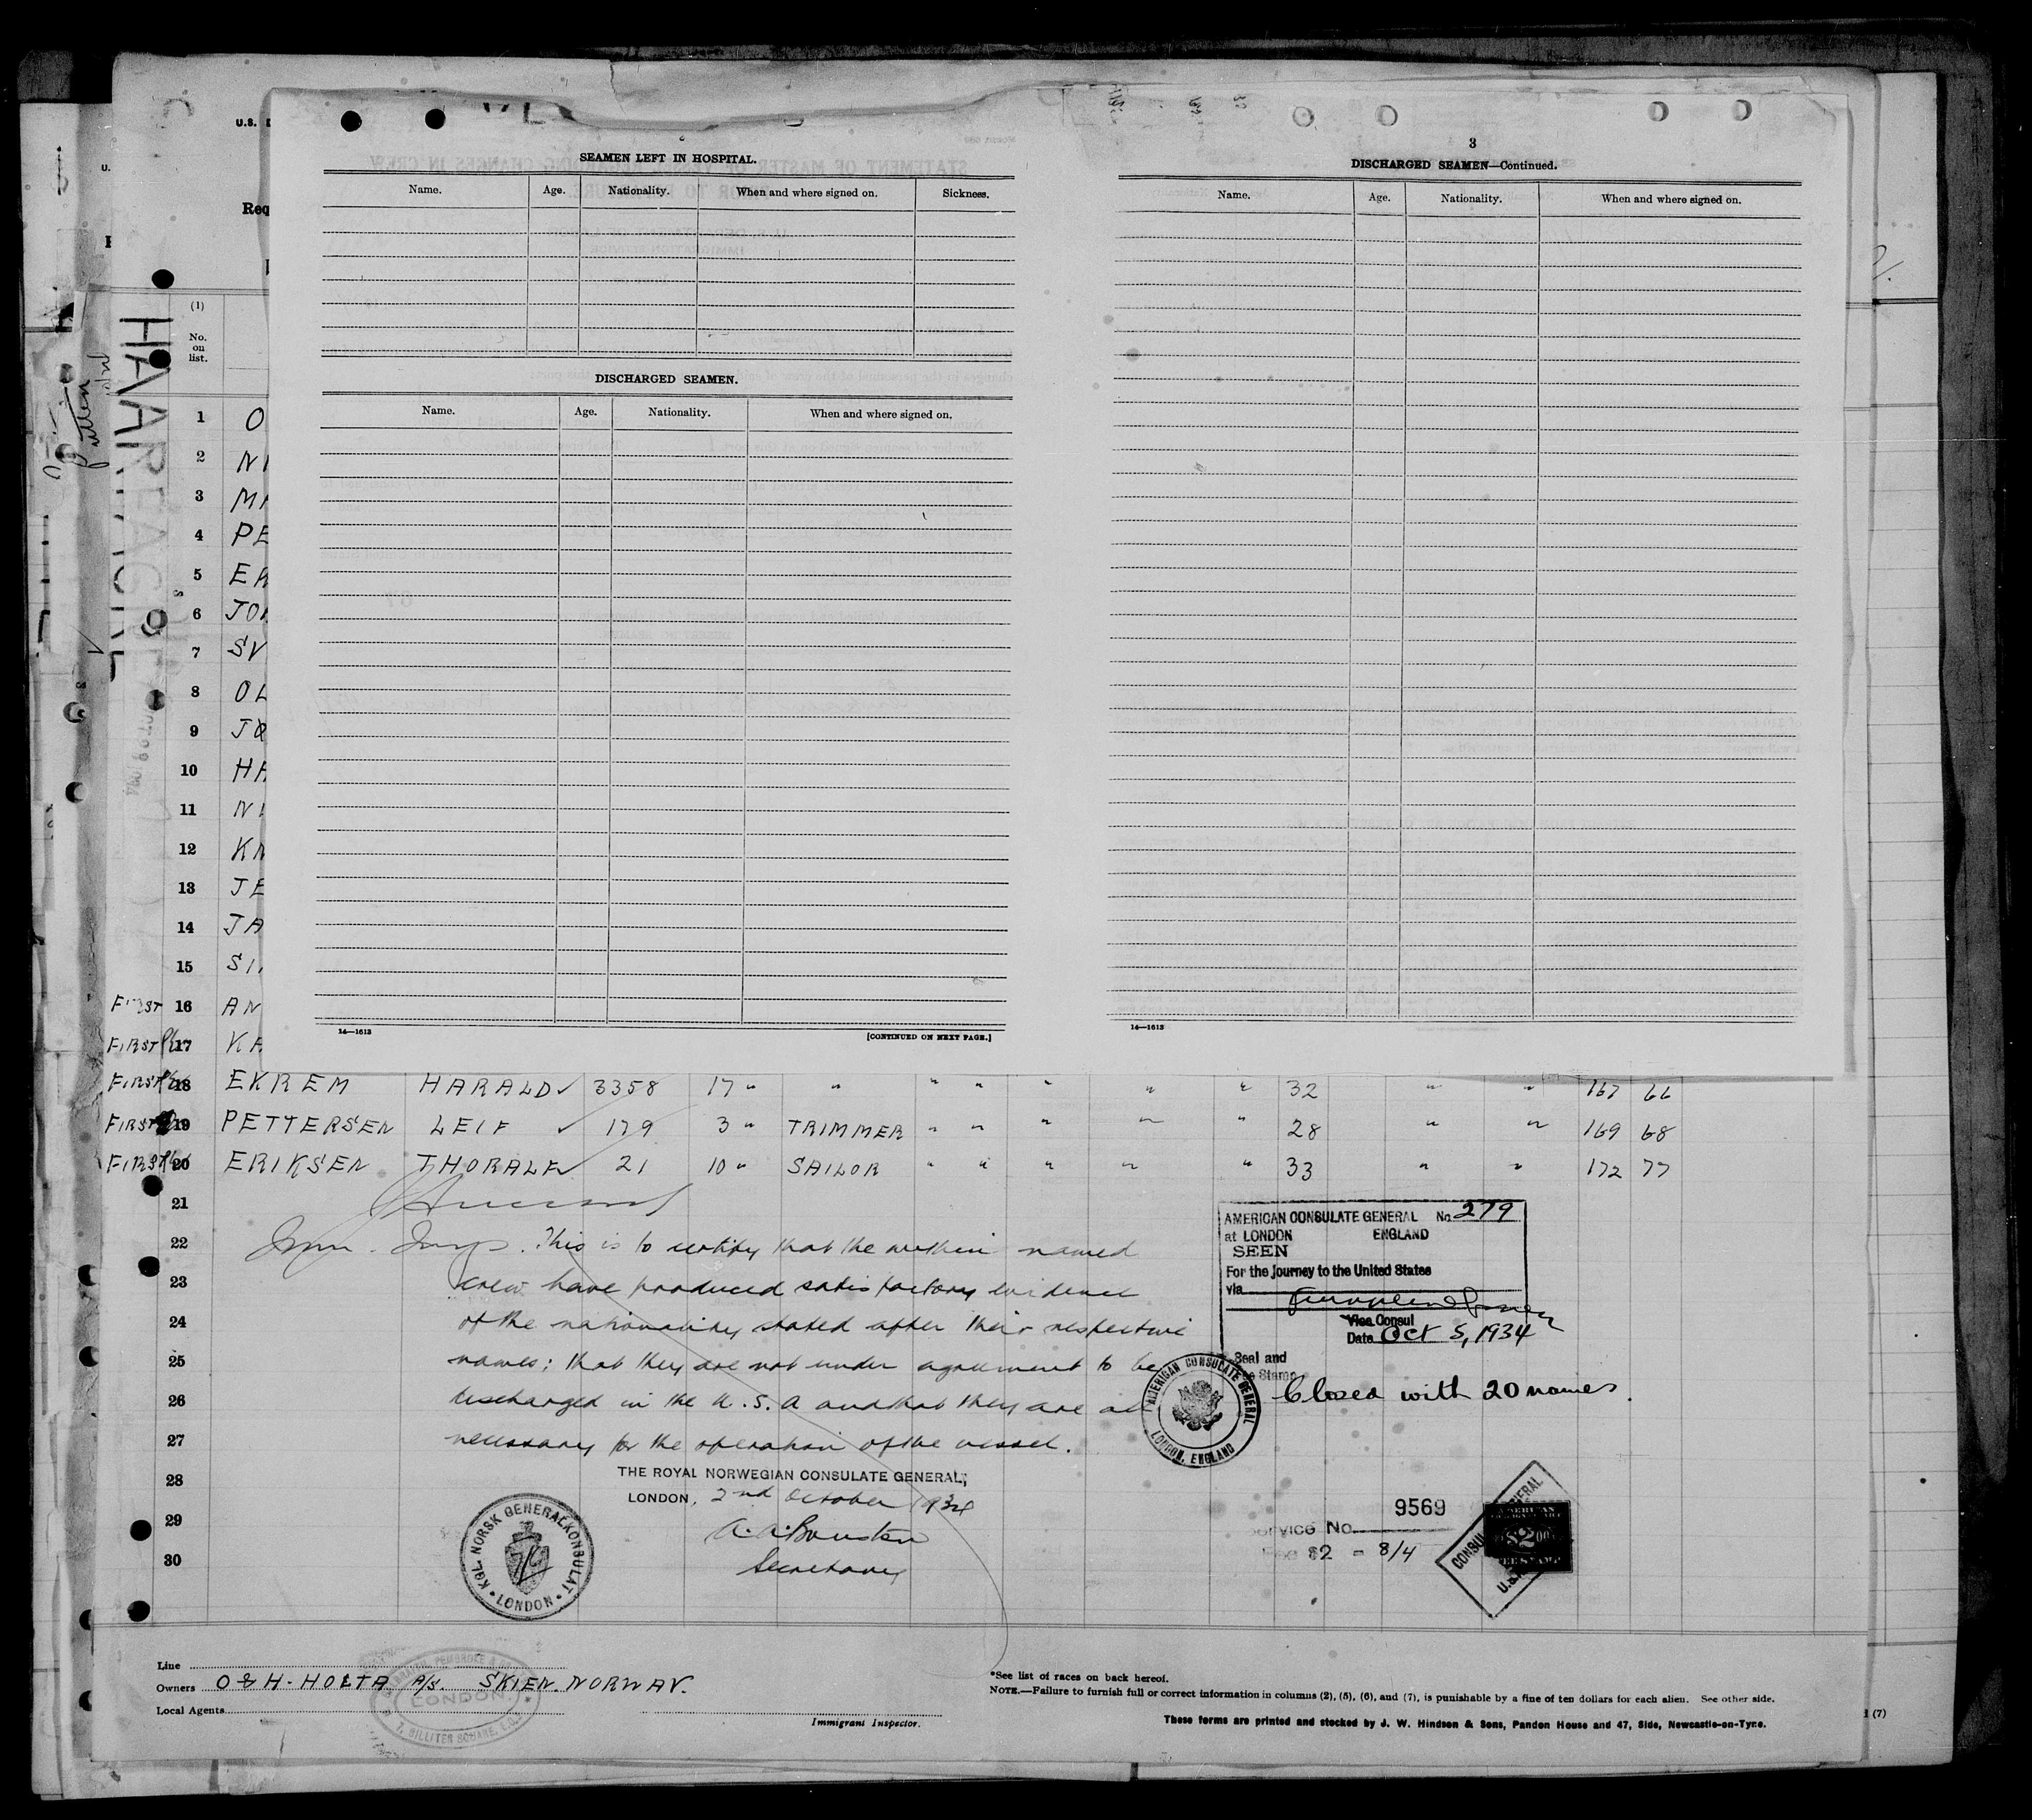 SEAMEN LEFT IN HOSPITAL.
Name. Age. Nationality. When and where signed on. Sickness.
DISCHARGED SEAMEN.
Name. Age. Nationality. When and where signed on.
14—1613 [CONTINUED ON NEXT PAGE.]
3
DISCHARGED SEAMEN—Continued.
Name. Age. Nationality. When and where signed on.
14—1613
U.S.
Req
(1)
No.
on
list.
HAARFAGRE
1 O
2 NI
3 MA
4 PE
5 ER
6 JOH
7 SV
8 OL
9 JO
10 HA
11 NI
12 KN
13 JE
14 JA
15 SI
FIRST 16 AN
FIRST 17 KA
FIRST 18 EKREM HARALD 3358 17 " " " " " " " 32 " " 167 66
FIRST 19 PETTERSEN LEIF 179 3 " TRIMMER " " " " " 28 " " 169 68
FIRST 20 ERIKSEN THORALF 21 10 " SAILOR " " " " " 33 " " 172 77
21
22 This is to certify that the within named
23 crew have produced satisfactory evidence
24 of the nationality stated after their respective
25 names; that they are not under agreement to be
26 discharged in the U.S.A and that they are all
27 necessary for the operation of the vessel.
28 THE ROYAL NORWEGIAN CONSULATE GENERAL,
LONDON, 2nd October 1934
29
30 Secretary
KGL. NORSK GENERALKONSULAT
LONDON
AMERICAN CONSULATE GENERAL No 279
at LONDON ENGLAND
SEEN
For the journey to the United States
via
Vice Consul
Date Oct 5, 1934
Seal and
Stamp
AMERICAN CONSULATE GENERAL
LONDON, ENGLAND
Closed with 20 names.
9569
Service No.
Fee $2 = 8/4
Line
Owners O & H. HOLTA A/S. SKIEN. NORWAY.
Local Agents
PEMBROKE
LONDON.
7, BILLITER SQUARE, E.C.3
Immigrant Inspector.
*See list of races on back hereof.
NOTE.—Failure to furnish full or correct information in columns (2), (5), (6), and (7), is punishable by a fine of ten dollars for each alien. See other side.
These forms are printed and stocked by J. W. Hindson & Sons, Pandon House and 47, Side, Newcastle-on-Tyne.
(7)